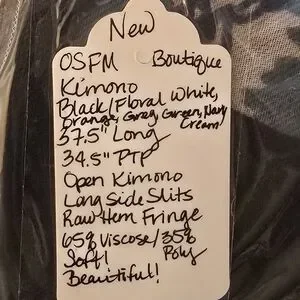 New
OSFM Boutique
Kimono
Black/Floral White,
Orange, Grey, Green, Navy
Cream
37.5" Long
34.5" PTP
Open Kimono
Long Side Slits
Raw Hem Fringe
65% Viscose/35%
Soft! Poly
Beautiful!